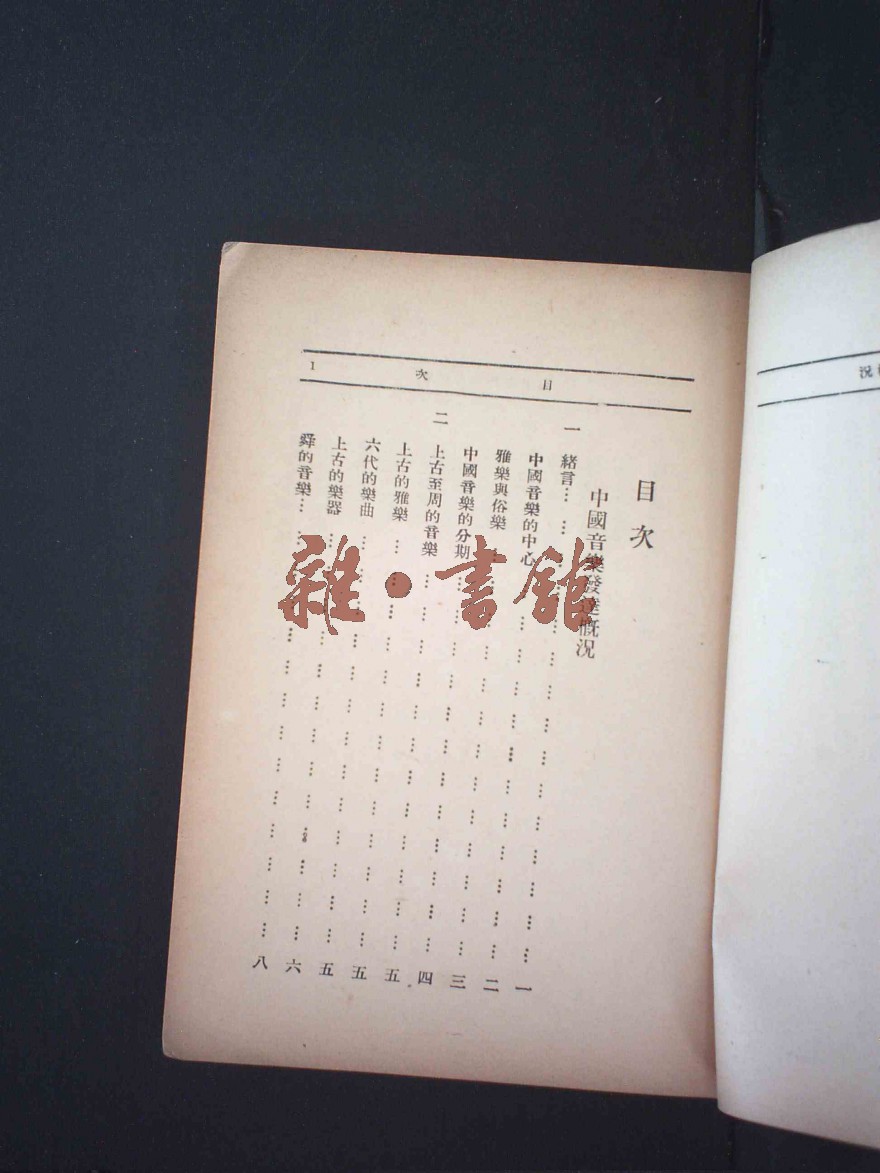 目次 1
目次
中國音樂發達概況
一 緒言……一
中國音樂的中心……二
雅樂與俗樂……三
中國音樂的分期……四
二 上古至周的音樂……五
上古的雅樂……五
六代的樂曲……五
上古的樂器……六
舜的音樂……八
況
雜·書館